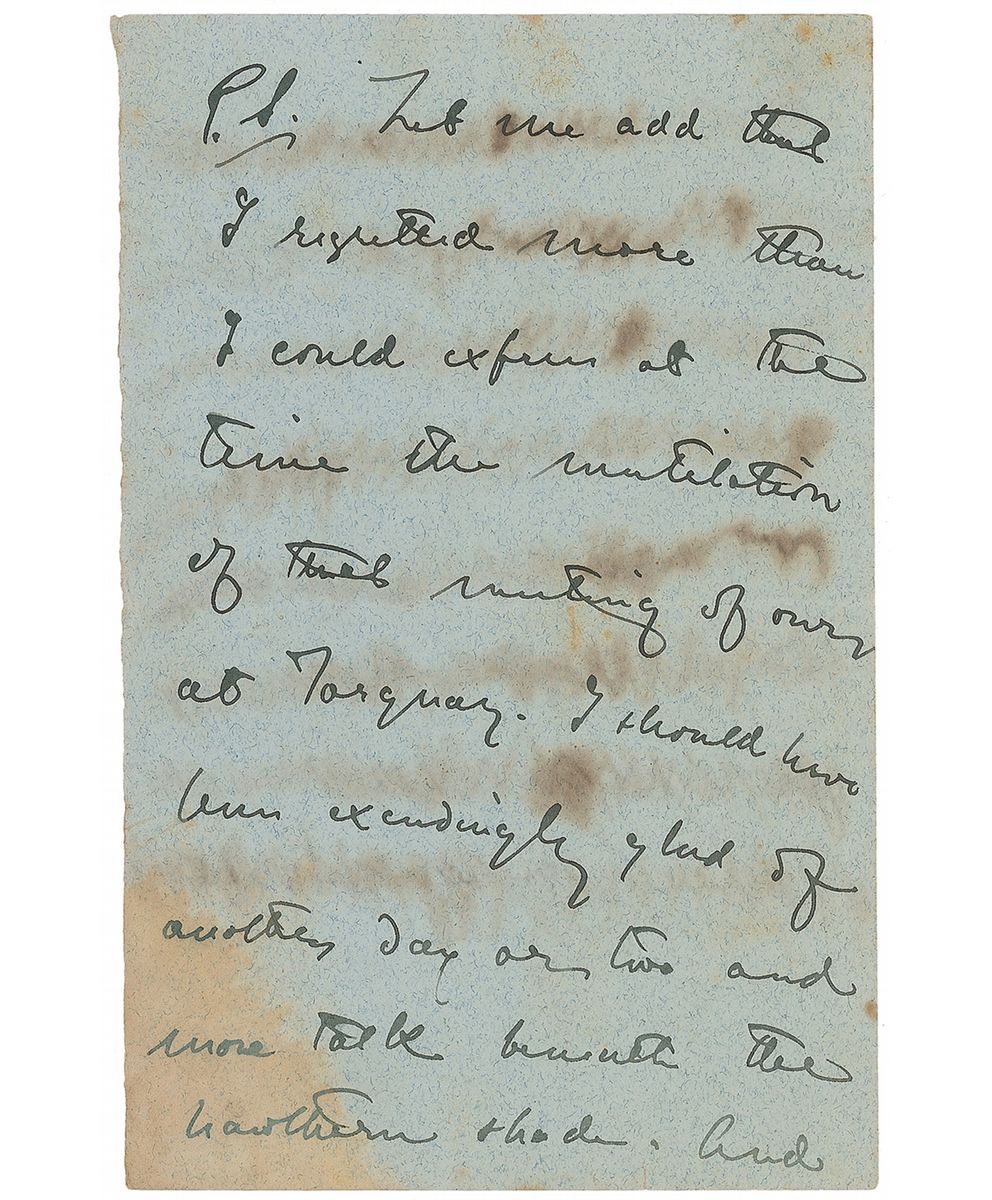 P.S. Let me add that
I regretted more than
I could express at the
time the mutilation
of that meeting of ours
at Torquay. I should have
been exceedingly glad of
another day or two and
more talk beneath the
hawthorn shade. And